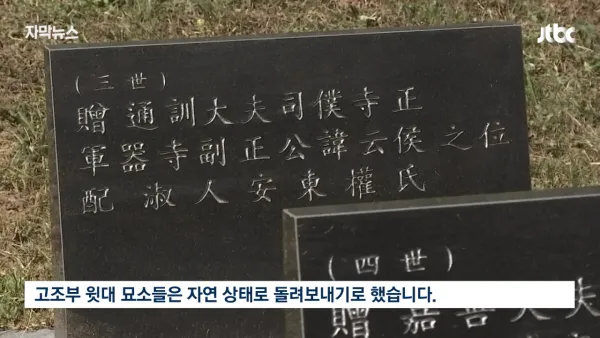 자막뉴스
jtbc
(三世)
贈通訓大夫司僕寺正
軍器寺副正公諱云侯之位
配淑人安東權氏
(四世)
贈嘉善大夫
고조부 윗대 묘소들은 자연 상태로 돌려보내기로 했습니다.